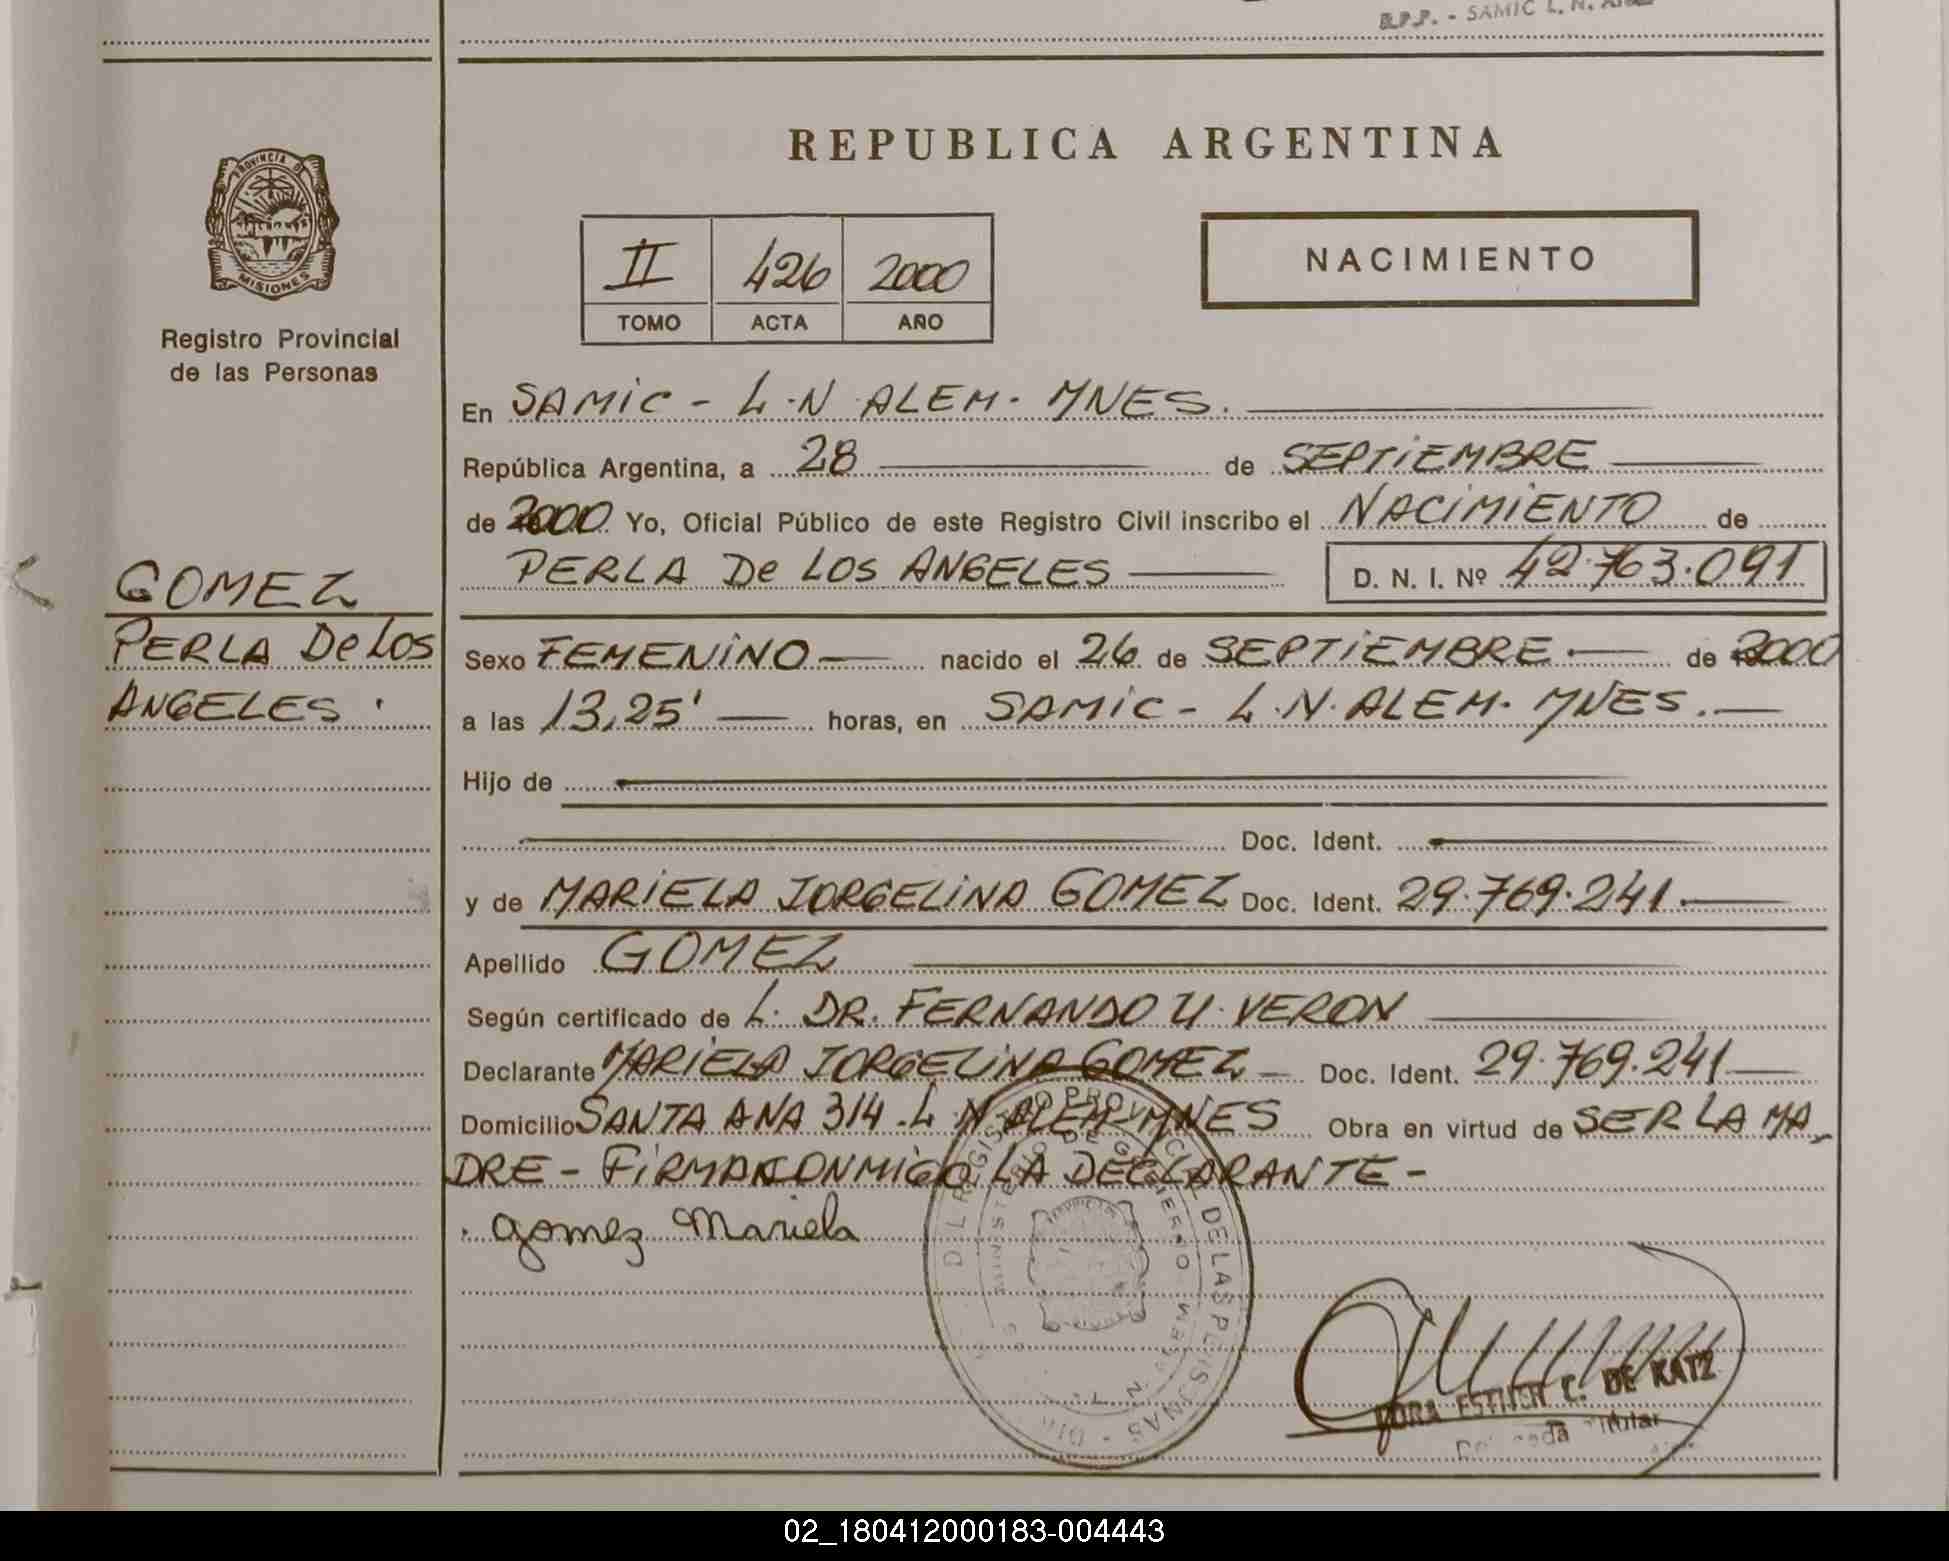 B.P.P. - SAMIC L. N.
REPUBLICA ARGENTINA
PROVINCIA DE
MISIONES
Registro Provincial
de las Personas
II 426 2000
TOMO ACTA AÑO
NACIMIENTO
En SAMIC - L.N ALEM. MNES.
República Argentina, a 28 de SEPTIEMBRE
de 2000 Yo, Oficial Público de este Registro Civil inscribo el NACIMIENTO de
PERLA De LOS ANGELES D. N. I. Nº 42.763.091
GOMEZ
PERLA De Los
ANGELES.
Sexo FEMENINO nacido el 26 de SEPTIEMBRE de 2000
a las 13,25' horas, en SAMIC - L.N. ALEM. MNES.
Hijo de
Doc. Ident.
y de MARIELA JORGELINA GOMEZ Doc. Ident. 29.769.241
Apellido GOMEZ
Según certificado de L. DR. FERNANDO U. VERON
Declarante MARIELA JORGELINA GOMEZ Doc. Ident. 29.769.241
Domicilio SANTA ANA 314. L N ALEM MNES Obra en virtud de SER LA MA
DRE - FIRMA CONMIGO LA DECLARANTE -
Gomez Mariela
REGISTRO PROVINCIAL DE LAS PERSONAS
MINISTERIO DE GOBIERNO
L. N. ALEM
ESTHER C. DE KATZ
Titular
02_180412000183-004443